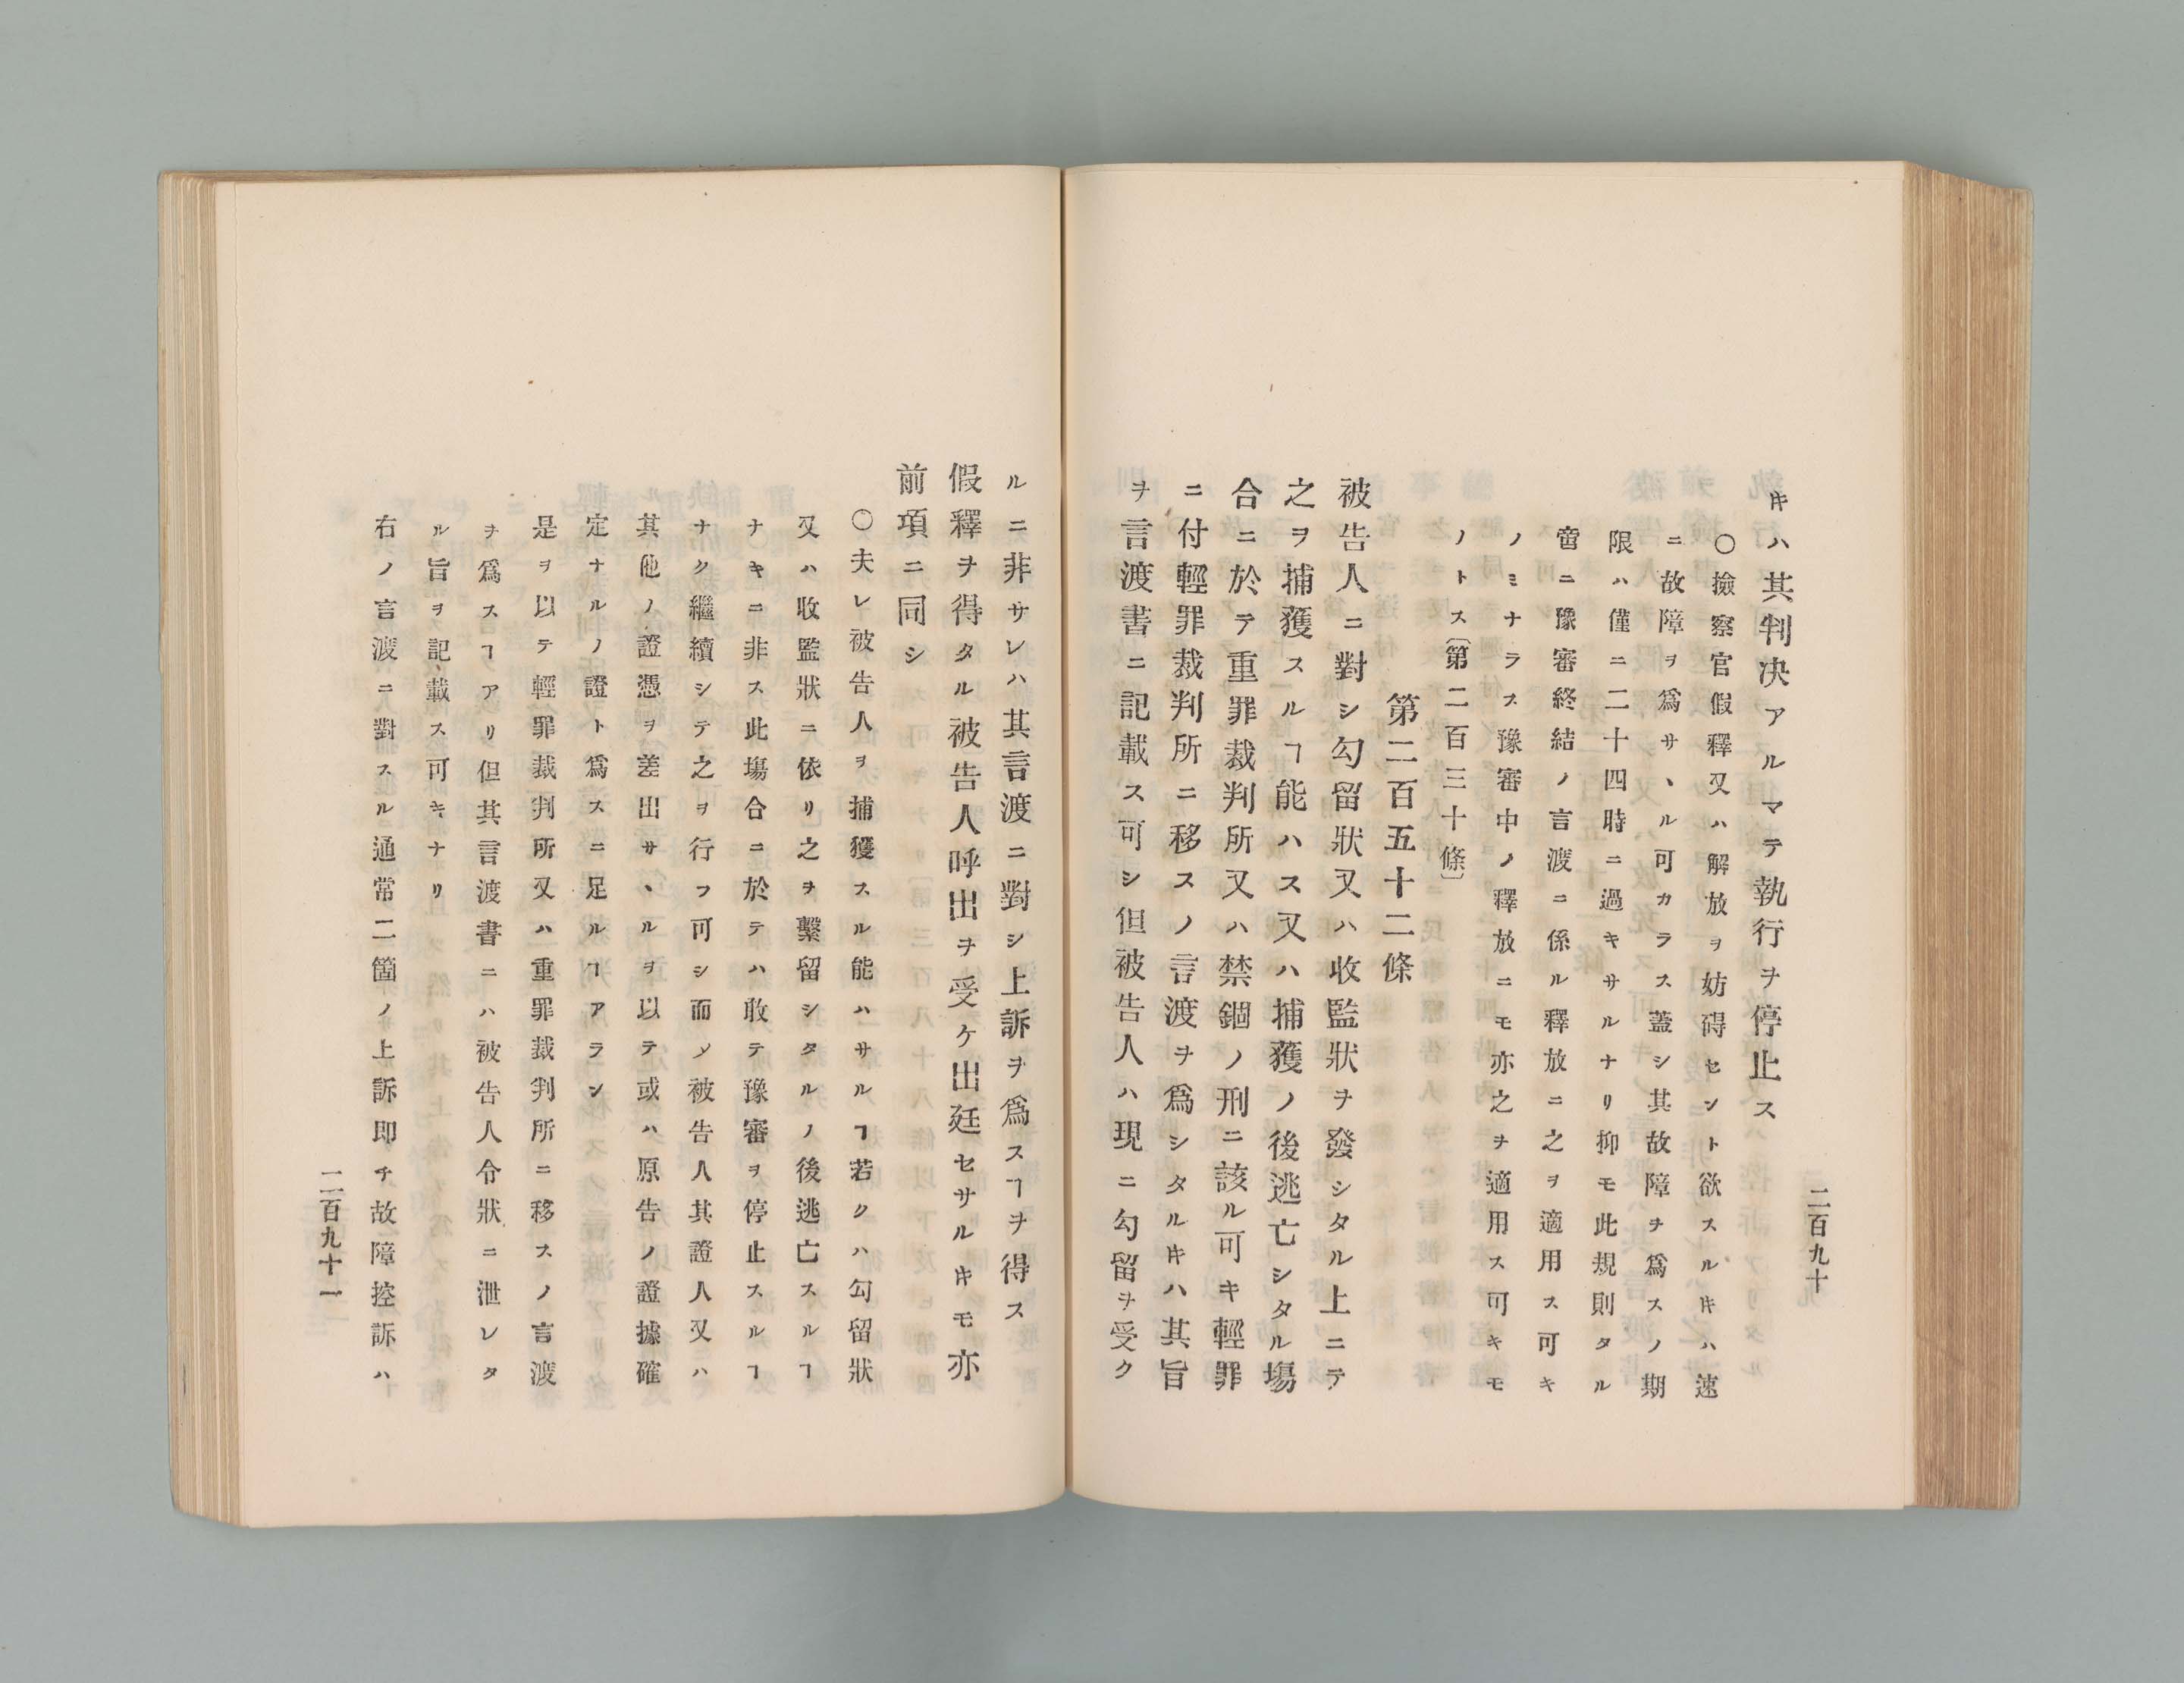 二百九十
𪜈ハ其判决アルマテ執行ヲ停止ス
○撿察官假釋又ハ解放ヲ妨碍セント欲スル𪜈ハ速
ニ故障ヲ爲サヽル可カラス蓋シ其故障ヲ爲スノ期
限ハ僅ニ二十四時ニ過キサルナリ抑モ此規則タル
啻ニ豫審終結ノ言渡ニ係ル釋放ニ之ヲ適用ス可キ
ノミナラス豫審中ノ釋放ニモ亦之ヲ適用ス可キモ
ノトス〔第二百三十條〕
第二百五十二條
被告人ニ對シ勾留狀又ハ收監狀ヲ發シタル上ニテ
之ヲ捕獲スルヿ能ハス又ハ捕獲ノ後逃亡シタル塲
合ニ於テ重罪裁判所又ハ禁錮ノ刑ニ該ル可キ輕罪
ニ付輕罪裁判所ニ移スノ言渡ヲ爲シタル𪜈ハ其旨
ヲ言渡書ニ記載ス可シ但被告人ハ現ニ勾留ヲ受ク
ルニ非サレハ其言渡ニ對シ上訴ヲ爲スヿヲ得ス
假釋ヲ得タル被告人呼出ヲ受ケ出廷セサル𪜈モ亦
前項ニ同シ
○夫レ被告人ヲ捕獲スル能ハサルヿ若クハ勾留狀
又ハ收監狀ニ依リ之ヲ繫留シタルノ後逃亡スルヿ
ナキニ非ス此塲合ニ於テハ敢テ豫審ヲ停止スルヿ
ナク繼續シテ之ヲ行フ可シ而〆被告人其證人又ハ
其他ノ證憑ヲ差出サヽルヲ以テ或ハ原告ノ證據確
定ナルノ證ト爲スニ足ルヿアラン
是ヲ以テ輕罪裁判所又ハ重罪裁判所ニ移スノ言渡
ヲ爲スヿアリ但其言渡書ニハ被告人令狀ニ泄レタ
ル旨ヲ記載ス可キナリ
右ノ言渡ニ對スル通常二箇ノ上訴即チ故障控訴ハ
二百九十一